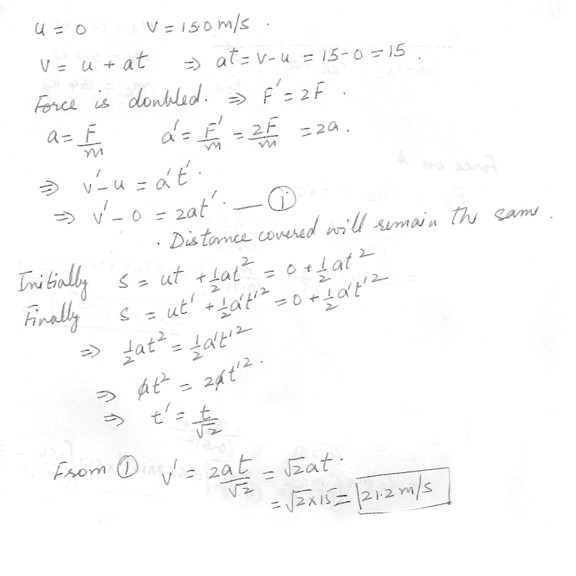 u = 0 V = 150 m/s .
V = u + at ⇒ at = v - u = 15 - 0 = 15 .
Force is doubled. ⇒ F' = 2F .
a = F/m a' = F'/m = 2F/m = 2a .
⇒ v' - u = a't' .
⇒ v' - 0 = 2at' . — ①
. Distance covered will remain the same .
Initially s = ut + ½at² = 0 + ½at²
Finally s = ut' + ½a't'² = 0 + ½a't'²
⇒ ½at² = ½a't'²
⇒ at² = 2at'² .
⇒ t' = t/√2
From ① v' = 2at/√2 = √2at .
= √2×15 = 21.2 m/s